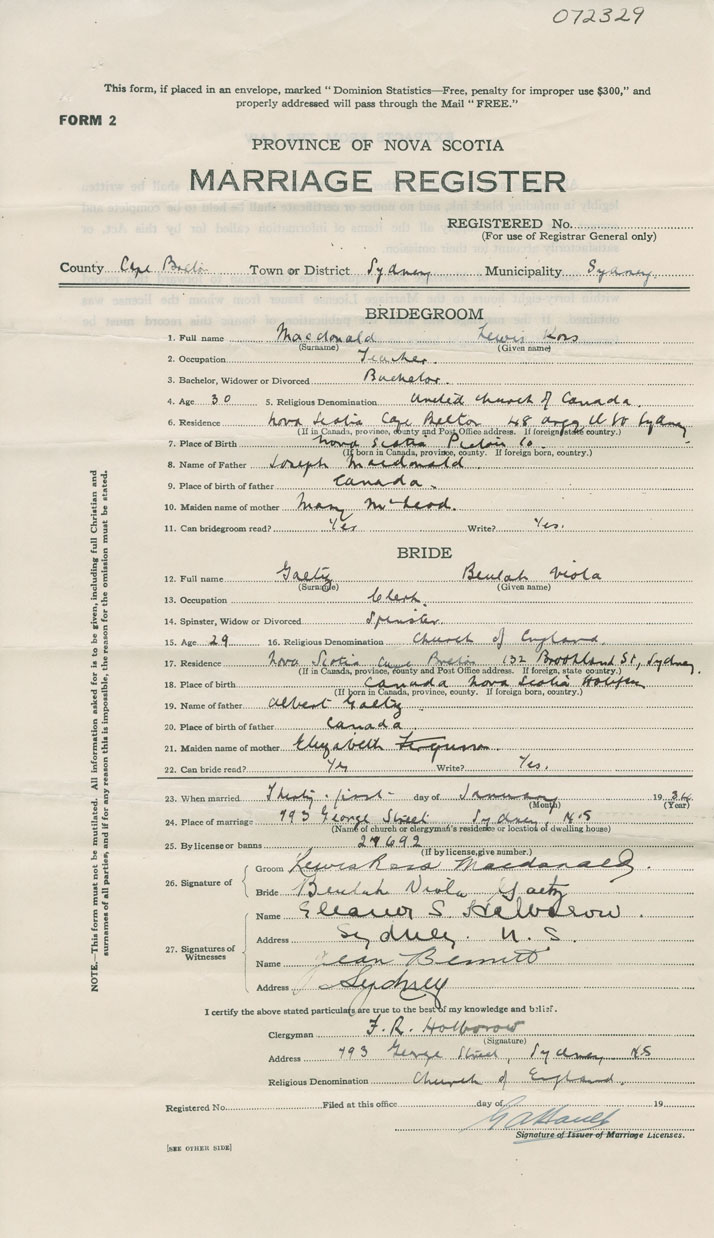 072329
This form, if placed in an envelope, marked "Dominion Statistics—Free, penalty for improper use $300," and
properly addressed will pass through the Mail "FREE."
FORM 2
PROVINCE OF NOVA SCOTIA
MARRIAGE REGISTER
REGISTERED No.
(For use of Registrar General only)
County Cape Breton Town or District Sydney Municipality Sydney
BRIDEGROOM
1. Full name Macdonald Lewis Ross
(Surname) (Given name)
2. Occupation Teacher.
3. Bachelor, Widower or Divorced Bachelor.
4. Age 30 5. Religious Denomination United Church of Canada.
6. Residence Nova Scotia Cape Breton 48 St Sydney
(If in Canada, province, county and Post Office address. If foreign, state country.)
7. Place of Birth Nova Scotia Pictou Co.
(If born in Canada, province, county. If foreign born, country.)
8. Name of Father Joseph Macdonald
9. Place of birth of father Canada.
10. Maiden name of mother Mary McLeod.
11. Can bridegroom read? Yes Write? Yes.
BRIDE
12. Full name Gaetz Beulah Viola
(Surname) (Given name)
13. Occupation Clerk.
14. Spinster, Widow or Divorced Spinster.
15. Age 29 16. Religious Denomination Church of England.
17. Residence Nova Scotia Cape Breton 132 Brookland St, Sydney.
(If in Canada, province, county and Post Office address. If foreign, state country.)
18. Place of birth Canada Nova Scotia Halifax
(If born in Canada, province, county. If foreign born, country.)
19. Name of father Albert Gaetz
20. Place of birth of father Canada
21. Maiden name of mother Elizabeth Ferguson.
22. Can bride read? Yes Write? Yes.
23. When married Thirty-first day of January 1934
(Month) (Year)
24. Place of marriage 793 George Street Sydney N.S
(Name of church or clergyman's residence or location of dwelling house)
25. By license or banns 27692
(If by license, give number.)
26. Signature of Groom Lewis Ross Macdonald.
Bride Beulah Viola Gaetz
27. Signatures of Witnesses Name Eleanor S. Holborow.
Address Sydney. N.S.
Name Jean Bennett
Address Sydney
I certify the above stated particulars are true to the best of my knowledge and belief.
Clergyman F. R. Holborow
(Signature)
Address 793 George Street, Sydney N.S
Religious Denomination Church of England.
Registered No. Filed at this office day of 19
Signature of Issuer of Marriage Licenses.
[SEE OTHER SIDE]
NOTE.—This form must not be mutilated. All information asked for is to be given, including full Christian and
surnames of all parties, and if for any reason this is impossible, the reason for the omission must be stated.